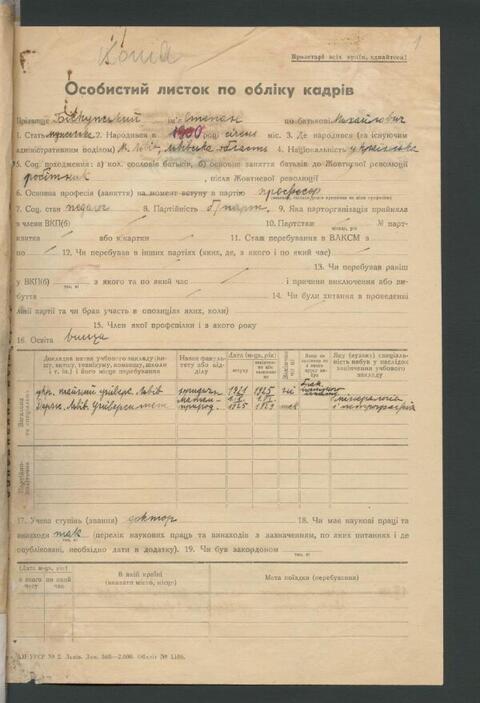 Копія
1
Пролетарі всіх країн, єднайтеся!
Особистий листок по обліку кадрів
Прізвище Біскупський ім'я Степан по батькові Михайлович
1. Стать мужеська 2. Народився в 1900 році січень міс. 3. Де народився (за існуючим
адміністративним поділом) м. Львів, Львівська область 4. Національність українська
5. Соц. походження: а) кол. сословіє батьків, б) основне заняття батьків до Жовтневої революції
робітник, після Жовтневої революції
6. Основна професія (заняття) на момент вступу в партію професор
7. Соц. стан педагог 8. Партійність б/парт. 9. Яка парторганізація прийняла
в члени ВКП(б) 10. Партстаж місяць, рік № парт-
квитка або к/картки 11. Стаж перебування в ВЛКСМ з
по 12. Чи перебував в інших партіях (яких, де, з якого і по який час)
13. Чи перебував раніш
у ВКП(б) так, ні з якого та по який час і причини виключення або ви-
буття 14. Чи були хитання в проведенні
лінії партії та чи брав участь в опозиціях яких, коли)
15. Член якої профспілки і з якого року
16. Освіта вища
Докладна назва учбового закладу (ви-
шу, втузу, технікуму, комвишу, школи
і т. ін.) і його місце перебування
Назва факуль-
тету або від-
ділу
Дата (м-ць, рік)
вступу
Яку (вузьку) спеціаль-
ність набув у наслідок
закінчення учбового
закладу
Укр. тайний універс. Львів 1921 1925 ні
Держ. Львів. Університет природ. 1925 1929 так мінералогія
і петрографія
17. Учена ступінь (звання) доктор 18. Чи має наукові праці та
винаходи так так, ні (перелік наукових праць та винаходів з зазначенням, по яких питаннях і де
опубліковані, необхідно дати в додатку). 19. Чи був закордоном так, ні
Дата (м-ць, рік)
з якого
часу
по який
час
В якій країні
(вказати місто, місце)
Мета поїздки (перебування)